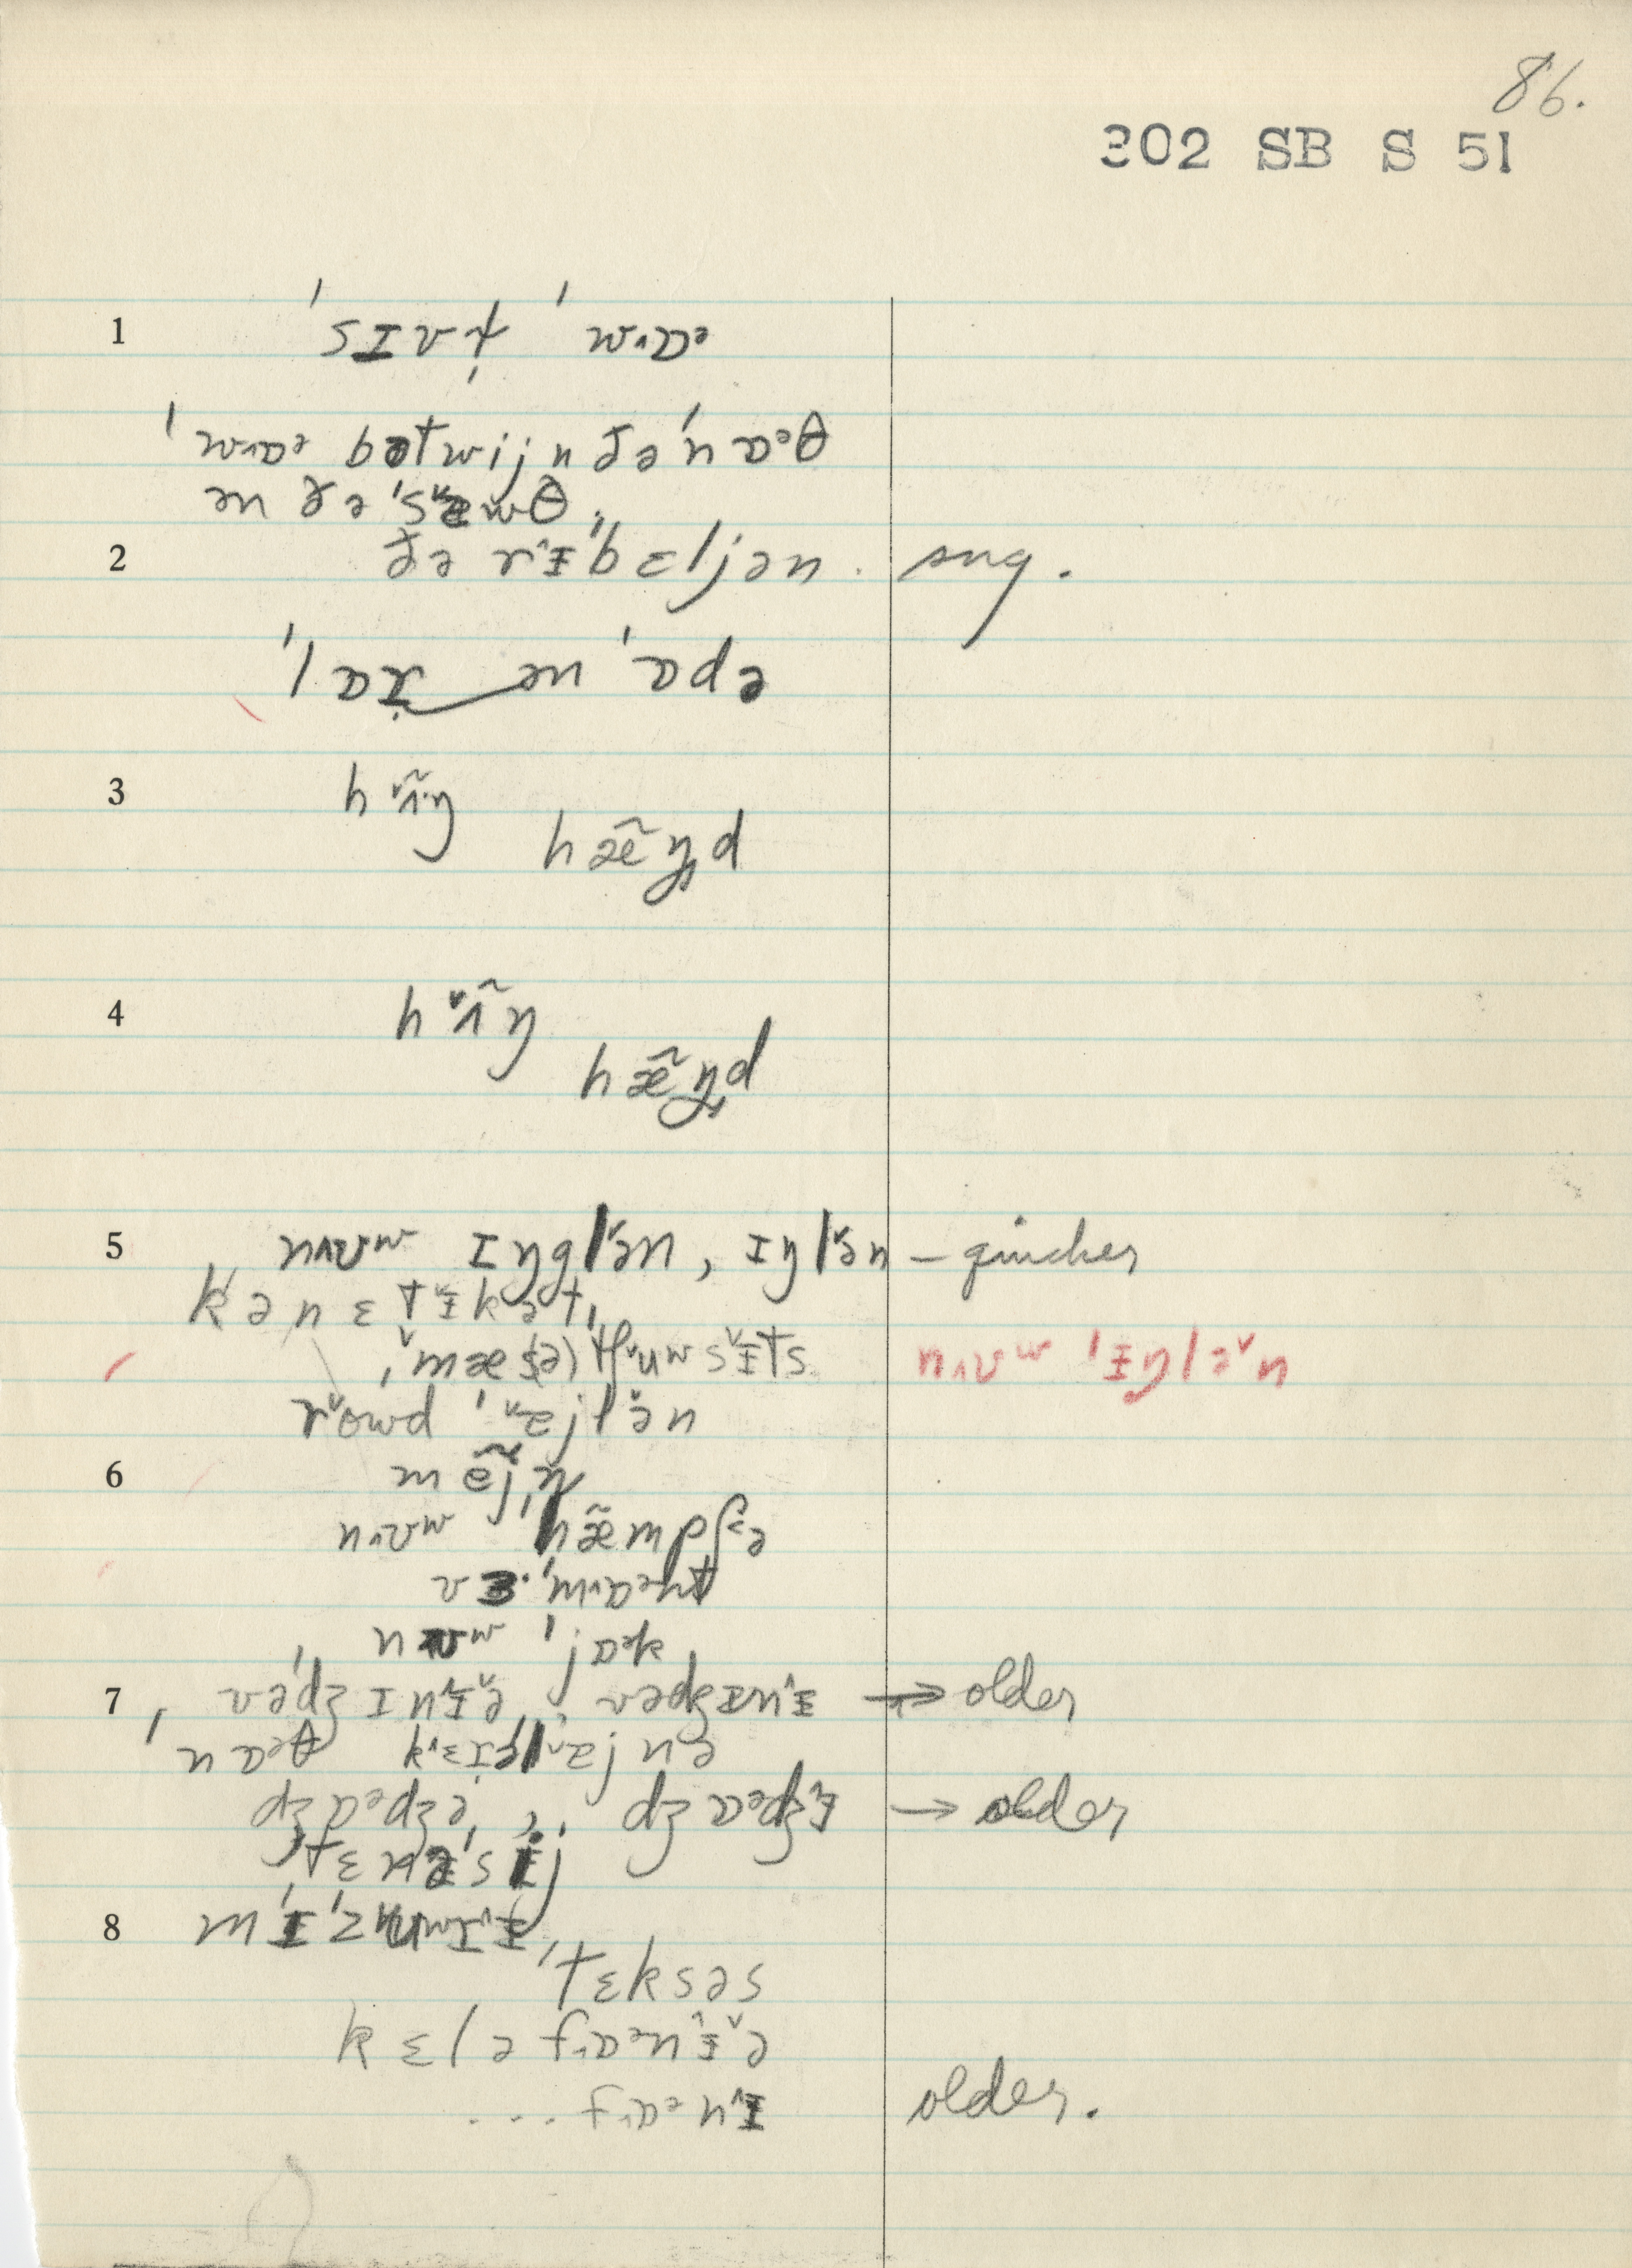 86.
302 SB S 51
1 ˈsɪvɫ̩ ˈwɒə
ˈwɒə bətwijn ðə ˈnɒəθ
ən ðə ˈsæwθ,
2 ðə rɨˈbɛljən. sug.
ən ˈɒdə
3 hʌ̃ŋ
hæ̃ŋd
4 hʌ̃ŋ
hæ̃ŋd
5 nʌʊw ɪŋglən, ɪŋlən – quicker
kənɛtɨkət,
ˌmæs(ə)tʃuwsɨts nʌʊw ˈɨŋlən
rowd ˈæjlən
6 mẽjn
nʌʊw hæ̃mpʃə
vəˈmɒənt
nʊw ˈjɒək
7 vədʒɪnɨə, vədʒɪnɨ → older
nɒəθ kɛɪəlɒjnə
dʒɒədʒə, dʒɒədʒɨ → older
ˌtɛnəˈsij
8 mɨˈzuwrɨ,
ˈtɛksəs
kɛləfɒənɨə
... fɒənɨ older.